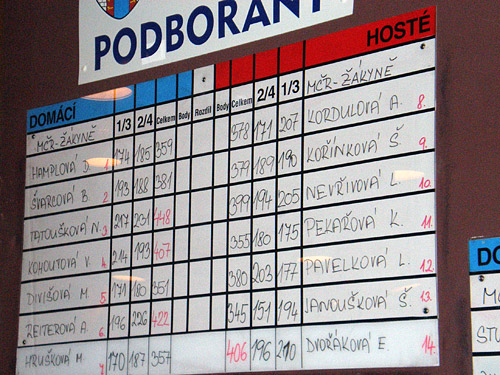 PODBOŘANY
DOMÁCÍ 1/3 2/4 Celkem Body Rozdíl Body Celkem 2/4 1/3 HOSTÉ
MČR-ŽÁKYNĚ MČR-ŽÁKYNĚ
HAMPLOVÁ D. 1. 174 185 359 378 171 207 KORDULOVÁ A. 8.
ŠVARCOVÁ B. 2 193 188 381 379 189 190 KOŘÍNKOVÁ Š. 9.
TATOUŠKOVÁ N. 3. 217 231 448 399 194 205 NEVŘIVOVÁ L. 10.
KOHOUTOVÁ V. 4 214 193 407 355 180 175 PEKAŘOVÁ K. 11.
DIVIŠOVÁ M. 5 171 180 351 380 203 177 PAVELKOVÁ L. 12
REITEROVÁ A. 6 196 226 422 345 151 194 JANOUŠKOVÁ Š. 13.
HRUŠKOVÁ M. 7 170 187 357 406 196 210 DVOŘÁKOVÁ E. 14.